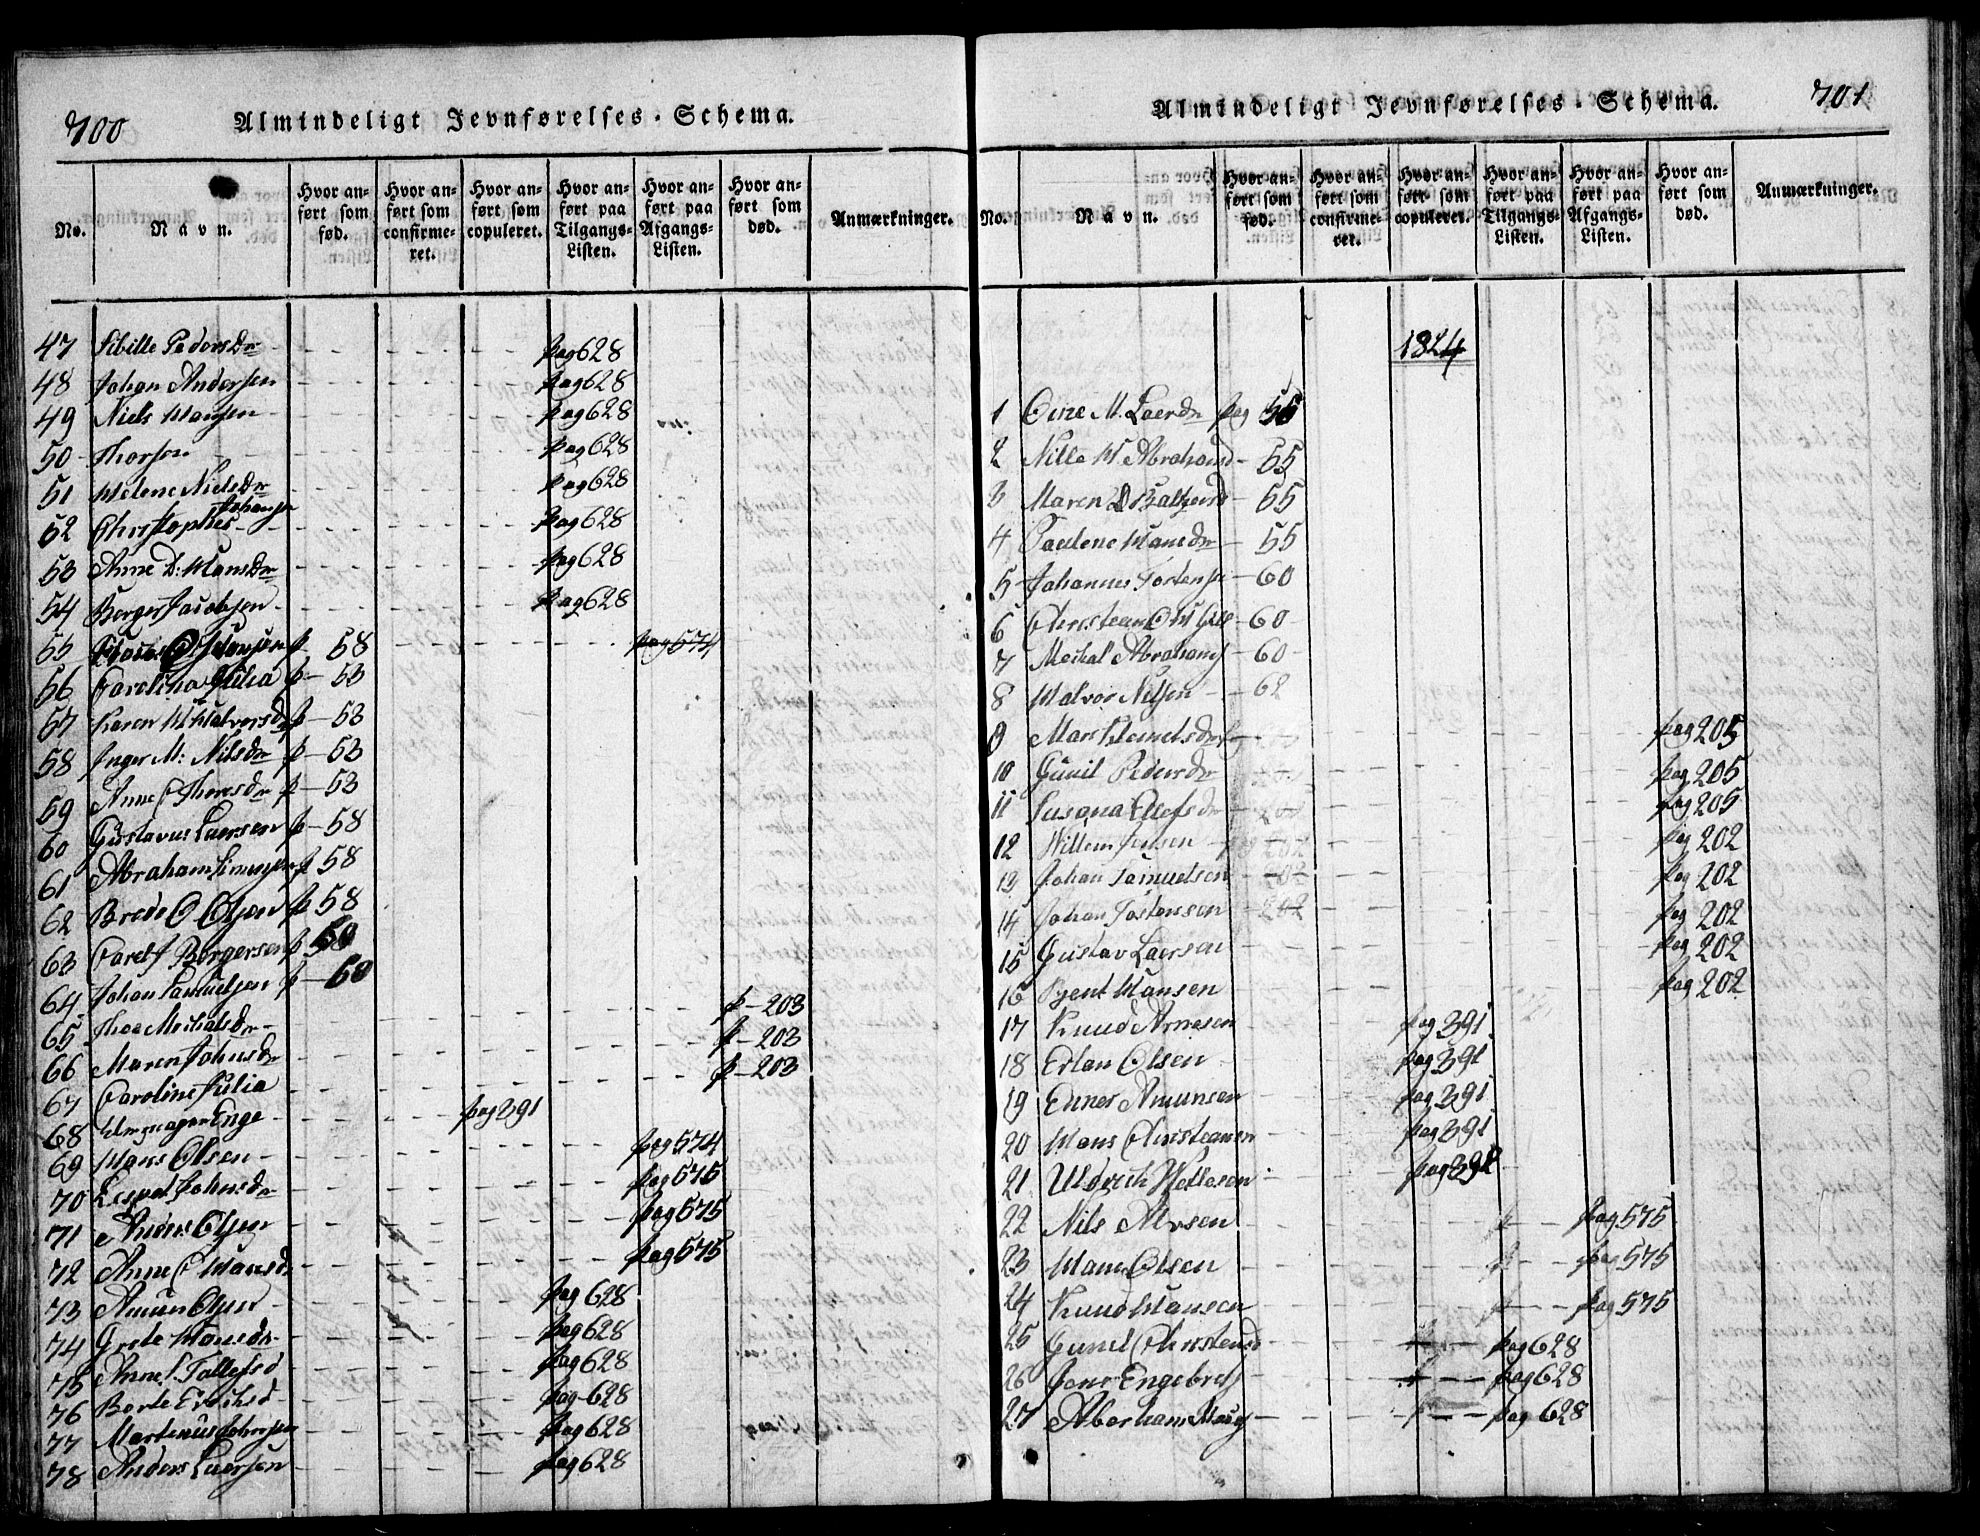 700
Almindeligt Jevnførelses-Schema.
No. Navn. Hvor anført som fød. Hvor anført som confirmeret. Hvor anført som copuleret. Hvor anført paa Tilgangs-Listen. Hvor anført paa Afgangs-Listen. Hvor anført som død. Anmærkninger.
47 Sibille Pedersdr pag 628
48 Johan Andersen pag 628
49 Niels Hansen pag 628
50 Thorsen pag 628
51 Helene Nielsdr pag 628
52 Christopher Johansen pag 628
53 Anne D: Hansdr pag 628
54 Berger Jacobsen pag 628
55 p 58 pag 574
56 Carolina Julia p 53
57 Karen M Halvorsdr p 53
58 Inger M: Nilsdr p 53
59 Anne C Thoresdr p 53
60 Gustavus Laersen p 58
61 Abraham Simensen p 58
62 Brede O Olsen p 58
63 Carel J Borgersen p
64 Johan Samuelsen p 60
65 Thea Michalsdr p 203
66 Maren Johnsdr p 203
67 Caroline Julia p 203
68 Enge pag 391
69 Hans Olsen pag 574
70 Johnsdr pag 575
71 Anders Olsen pag 575
72 Anne C Hansdr pag 575
73 Amun Olsen pag 628
74 Grete Hansdr pag 628
75 Anne Tollefsd pag 628
76 Berte Erichsd pag 628
77 Martenus Johnsen pag 628
78 Anders Laersen pag 628
701
Almindeligt Jevnførelses-Schema.
No. Navn. Hvor anført som fød. Hvor anført som confirmeret. Hvor anført som copuleret. Hvor anført paa Tilgangs-Listen. Hvor anført paa Afgangs-Listen. Hvor anført som død. Anmærkninger.
1824
1 Oine M. Laerdr pag 55
2 Nille M Abrahamsd 55
3 Maren 55
4 Paulene Hansdr 55
5 Johannes Tostensen 60
6 Christean 60
7 Meikal Abrahams 60
8 Halvor Nilsen 62
9 pag 205
10 Gunil Pedersdr pag 205
11 Susana Ellefsdr pag 205
12 Willem Jensen pag 202 pag 202
13 Johan Samuelsen 202 pag 202
14 Johan Tostensen 202 pag 202
15 Gustav Laersen pag 202
16 Bent Hansen pag 202
17 Knud Arnesen pag 391
18 Erlan Olsen pag 391
19 Enner Amunsen pag 391
20 Hans Christeansen pag 391
21 Uldrich pag 391
22 Nils Alvsen pag 575
23 Hans Olsen pag 575
24 Knud Hansen pag 575
25 Gunel Christensd pag 628
26 Jens Engebrets pag 628
27 Aberham pag 628